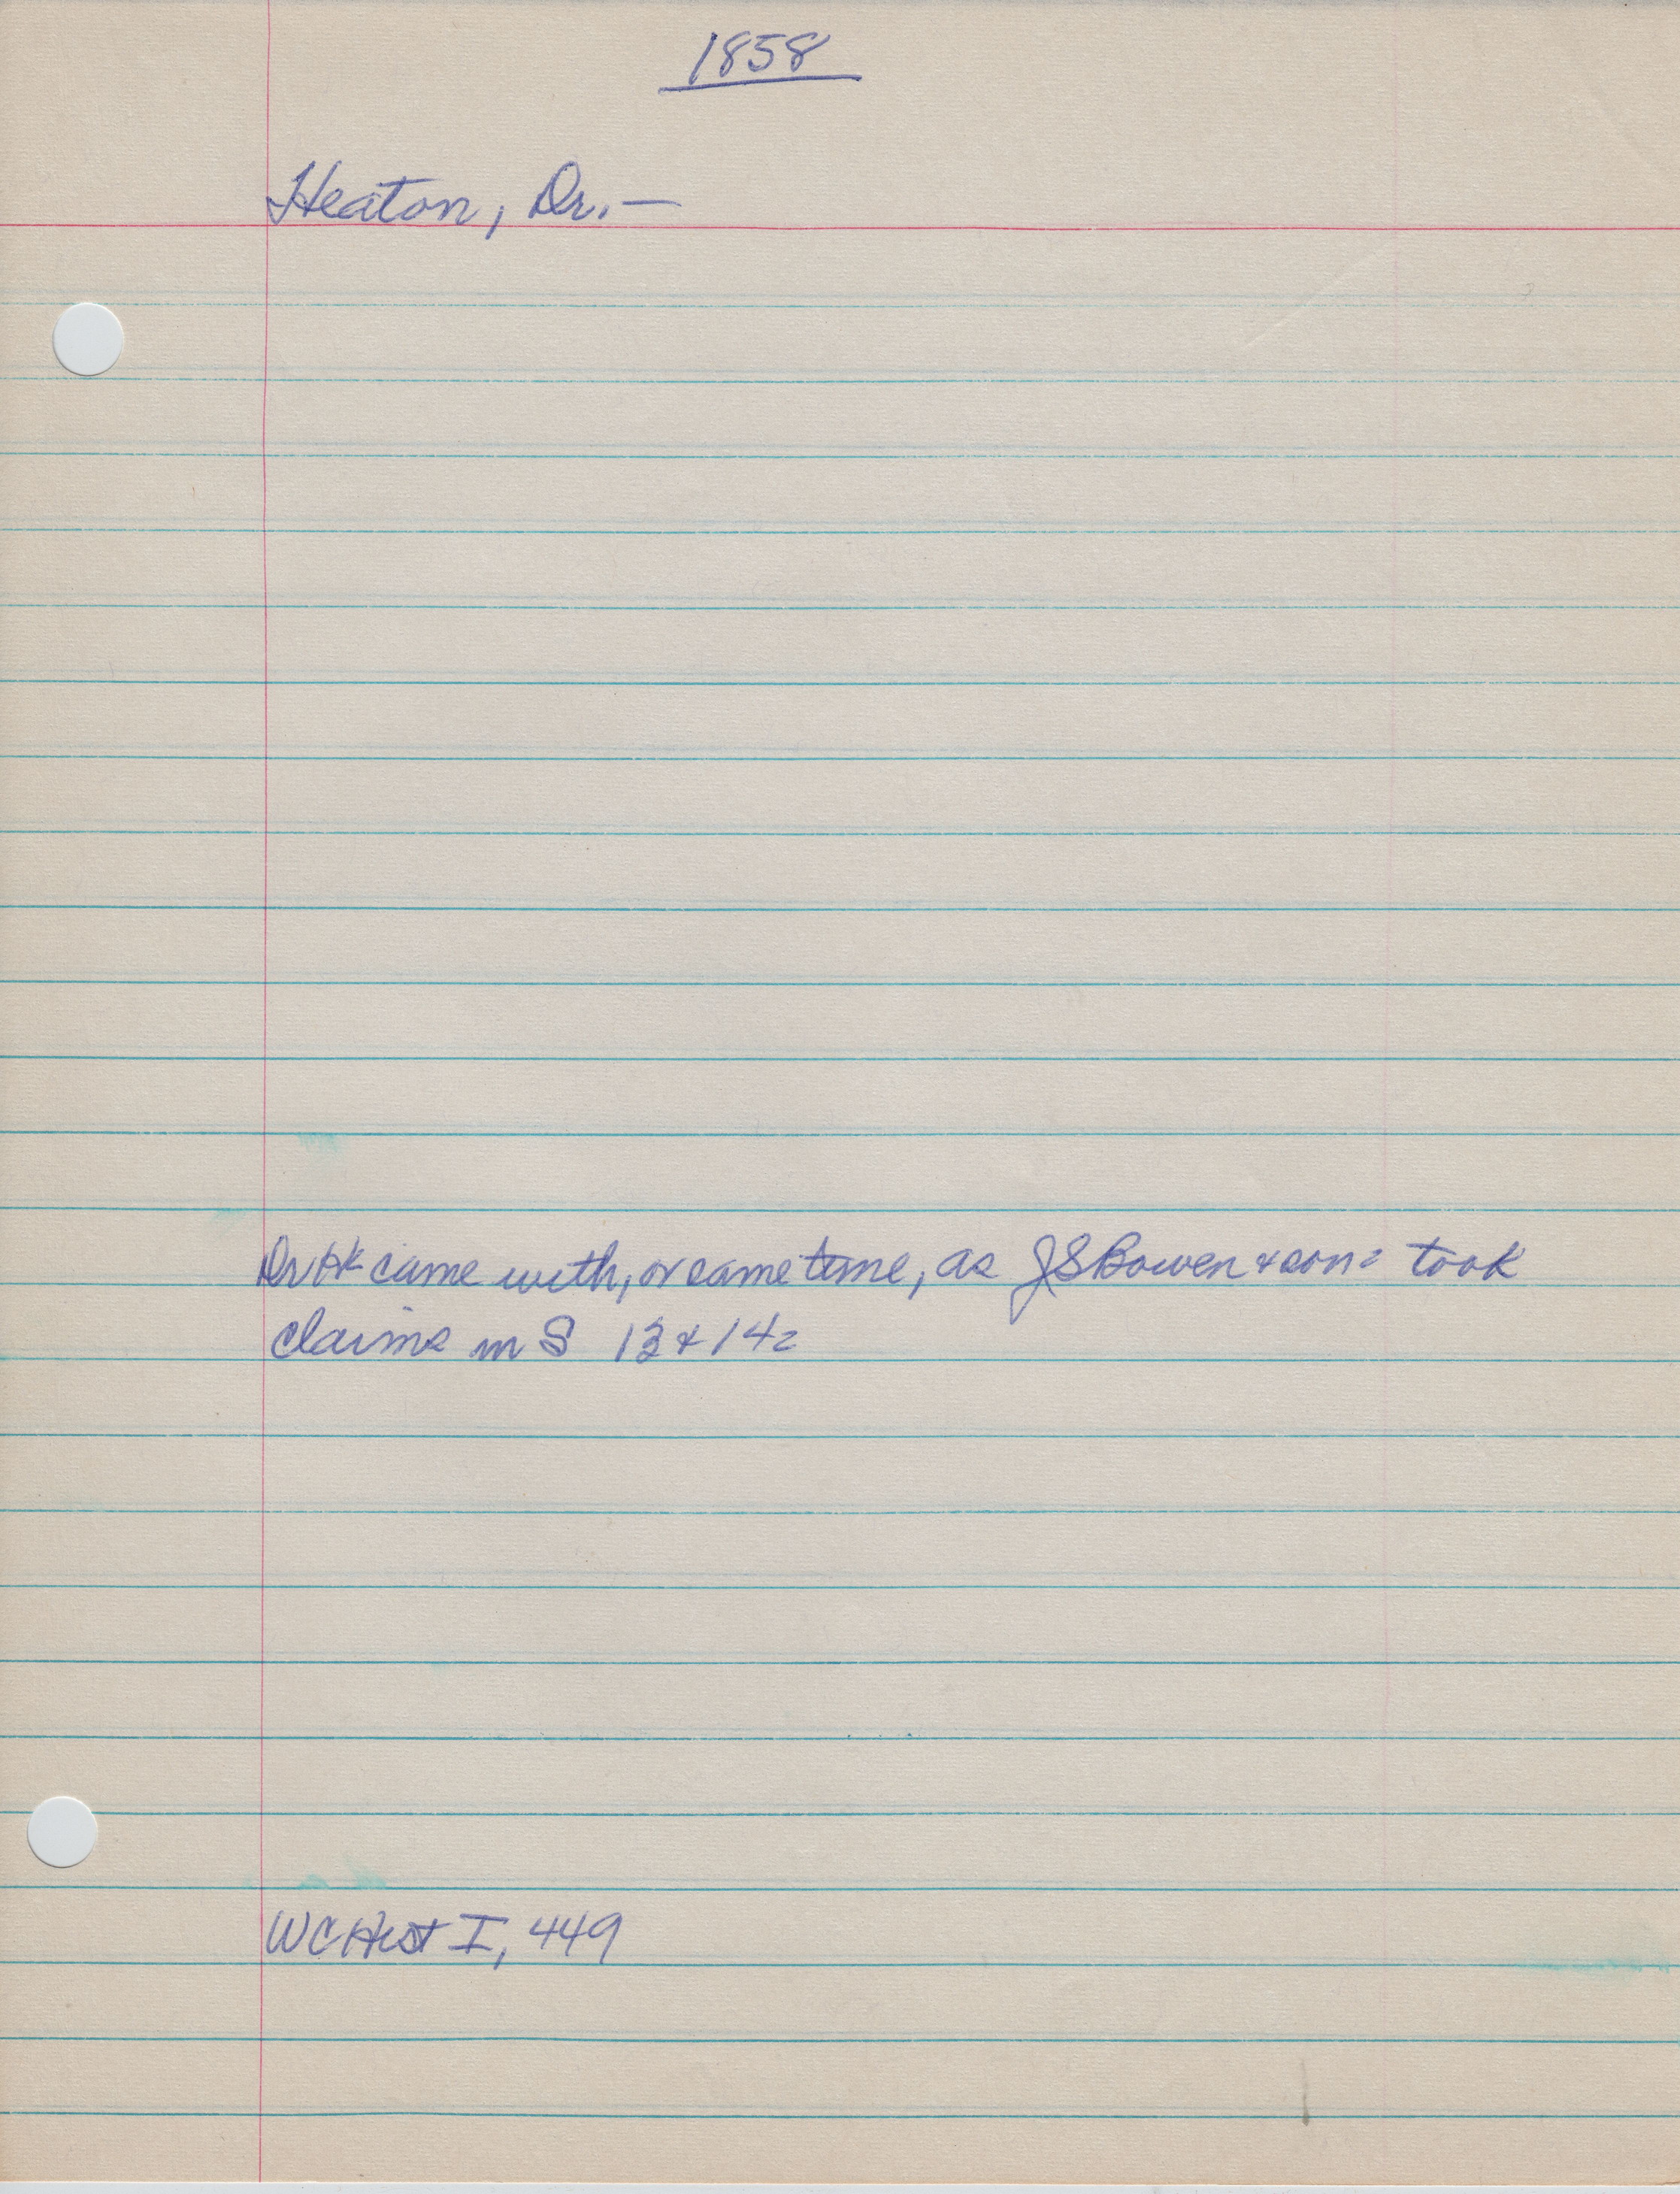 1858
Heaton, Dr. —
Dr H came with, or same time, as J S Bowen & son: took
claims in S 13 & 14:
WC Hist I, 449